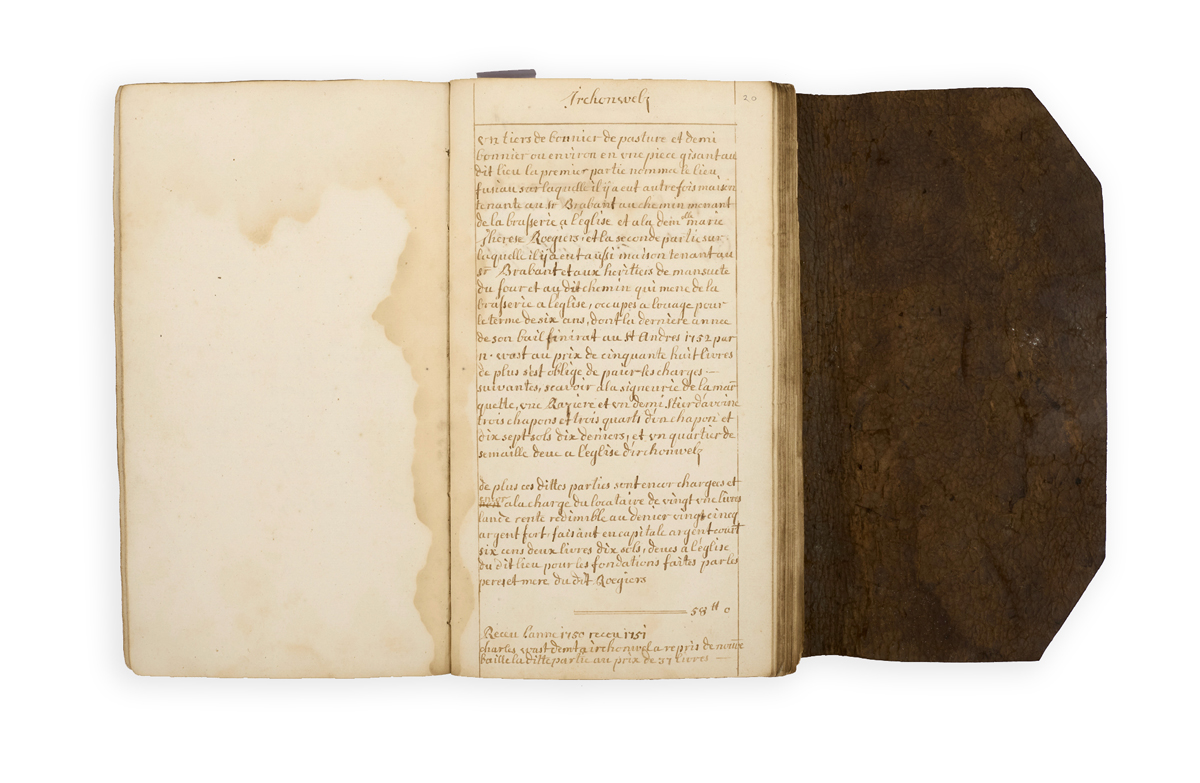 Irchonwelz
20
vn tiers de bonnier de pasture et demi
bonnier ou environ en vne piece gisant au
dit lieu la premier partie nomme le lieu
fusiau sur laquelle il ÿ a eut autrefois maison
tenante au sr Brabant au chemin menant
de la brasserie a l'eglise et a la demlle marie
Thérese Roegiers, et la seconde partie sur
laquelle il ÿ a eut aussi maison tenant au
sr Brabant et aux heritiers de mansuite
du four et au dit chemin qui mene de la
brasserie a l'eglise, occupes a louage pour
le terme de six ans, dont la derniere annee
de son bail finirat au St Andres 1752 par
n. wast au prix de cinquante huit livres
de plus s'est oblige de paier les charges
suivantes, scavoir a la signeurie de la mar
quelle, vne Raziere et vn demi stier d'avoine
trois chapons et trois quarts d'un chapon et
dix sept sols dix deniers, et vn quartier de
semaille deue a l'eglise d'irchonwelz
de plus ces dittes parties sont encor charges et
a la charge du locataire de vingt vne livres
l'an de rente redimible au denier vingt cincq
argent fort faisant en capitale argent court
six cens deux livres dix sols, deues a l'eglise
du dit lieu pour les fondations faites par les
pere et mere du dit Roegiers
58 ll 0
Receu l'anne 1750 receu 1751
charles wast demt a irchonwelz a repris de nouve
baille la ditte partie au prix de 57 livres